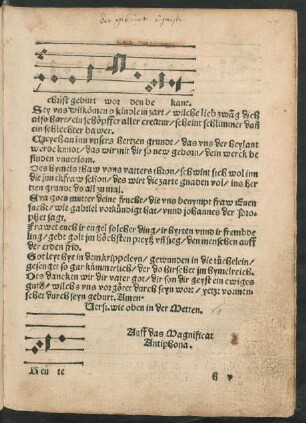 christ geburt wor den be kant.
Sey vns wilkōmen o kindlein zart / wilche lieb zwāg dich
also hart / ein schöpffer aller creatur / scheint schlimmer dañ
ein schlechter bawer.
Weychan inn vnsern hertzen grundt / das vns der heylant
werde kundt / das wir mit dir so new geborn / dein werck be
finden vnuerlorn.
Des hymels thaw vons vatters thron / schwint sich wol inn
die junckfraw schon / des wirt die zarte gnaden vol / ins her
tzen grunde do all zumal.
Eua goes mutter deine frucht / die vns benympt fraw Euen
sucht / wie gabriel vorkündigt hat / vnnd johannes der pro
phet sagt.
Frawet euch ir engel solcher ding / ir hyrten vnnd ir frembde
ling / gebt got im höchsten preyß vñ sieg / den menschen auff
der erden frid.
Got leyt hye in dem krippeleyn / gewunden in die tüchelein /
gesenget so gar kümmerlich / der do hirschet im hymelreich.
Des dancken wir dir vater got / dir son dir geyst ein ewiges
gut / wilchs vns vorgötet durch seyn wort / yetzt vormen-
schet durch seyn geburt. Amen.
Versi. wie oben in der Metten.
Auff das Magnificat
Antiphona.
Heu te
G v